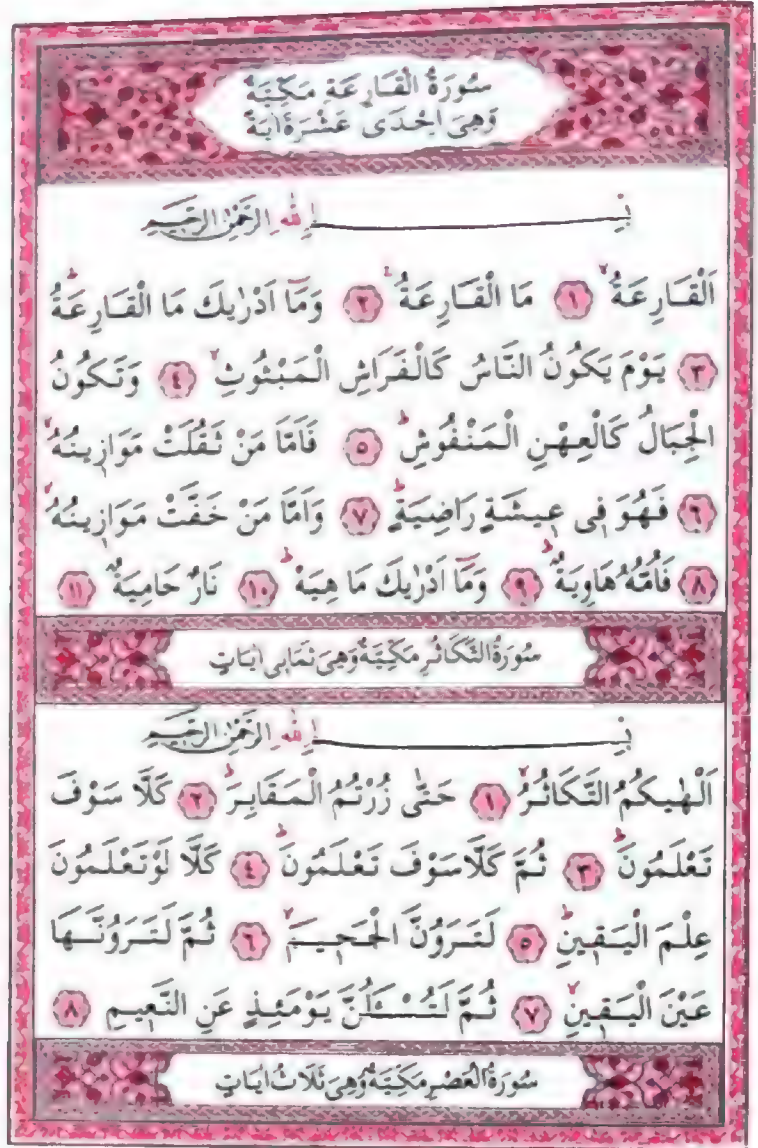 سُورَةُ الْقَارِعَةِ مَكِّيَّةٌ
وَهِيَ اِحْدٰى عَشْرَةَ اٰيَةً
بِسْمِ اللّٰهِ الرَّحْمٰنِ الرَّحِيمِ
اَلْقَارِعَةُۙ ﴿١﴾ مَا الْقَارِعَةُۚ ﴿٢﴾ وَمَٓا اَدْرٰيكَ مَا الْقَارِعَةُۜ
﴿٣﴾ يَوْمَ يَكُونُ النَّاسُ كَالْفَرَاشِ الْمَبْثُوثِۙ ﴿٤﴾ وَتَكُونُ
الْجِبَالُ كَالْعِهْنِ الْمَنْفُوشِۜ ﴿٥﴾ فَاَمَّا مَنْ ثَقُلَتْ مَوَازِينُهُۙ
﴿٦﴾ فَهُوَ فِى عِيشَةٍ رَاضِيَةٍۜ ﴿٧﴾ وَاَمَّا مَنْ خَفَّتْ مَوَازِينُهُۙ
﴿٨﴾ فَاُمُّهُ هَاوِيَةٌۜ ﴿٩﴾ وَمَٓا اَدْرٰيكَ مَا هِيَهْۜ ﴿١٠﴾ نَارٌ حَامِيَةٌ ﴿١١﴾
سُورَةُ التَّكَاثُرِ مَكِّيَّةٌ وَهِيَ ثَمَانِى اٰيَاتٍ
بِسْمِ اللّٰهِ الرَّحْمٰنِ الرَّحِيمِ
اَلْهٰيكُمُ التَّكَاثُرُۙ ﴿١﴾ حَتّٰى زُرْتُمُ الْمَقَابِرَۜ ﴿٢﴾ كَلَّا سَوْفَ
تَعْلَمُونَۜ ﴿٣﴾ ثُمَّ كَلَّا سَوْفَ تَعْلَمُونَۜ ﴿٤﴾ كَلَّا لَوْ تَعْلَمُونَ
عِلْمَ الْيَقِينِۜ ﴿٥﴾ لَتَرَوُنَّ الْجَحِيمَۙ ﴿٦﴾ ثُمَّ لَتَرَوُنَّهَا
عَيْنَ الْيَقِينِۙ ﴿٧﴾ ثُمَّ لَتُسْـَٔلُنَّ يَوْمَئِذٍ عَنِ النَّعِيمِ ﴿٨﴾
سُورَةُ الْعَصْرِ مَكِّيَّةٌ وَهِيَ ثَلَاثُ اٰيَاتٍ